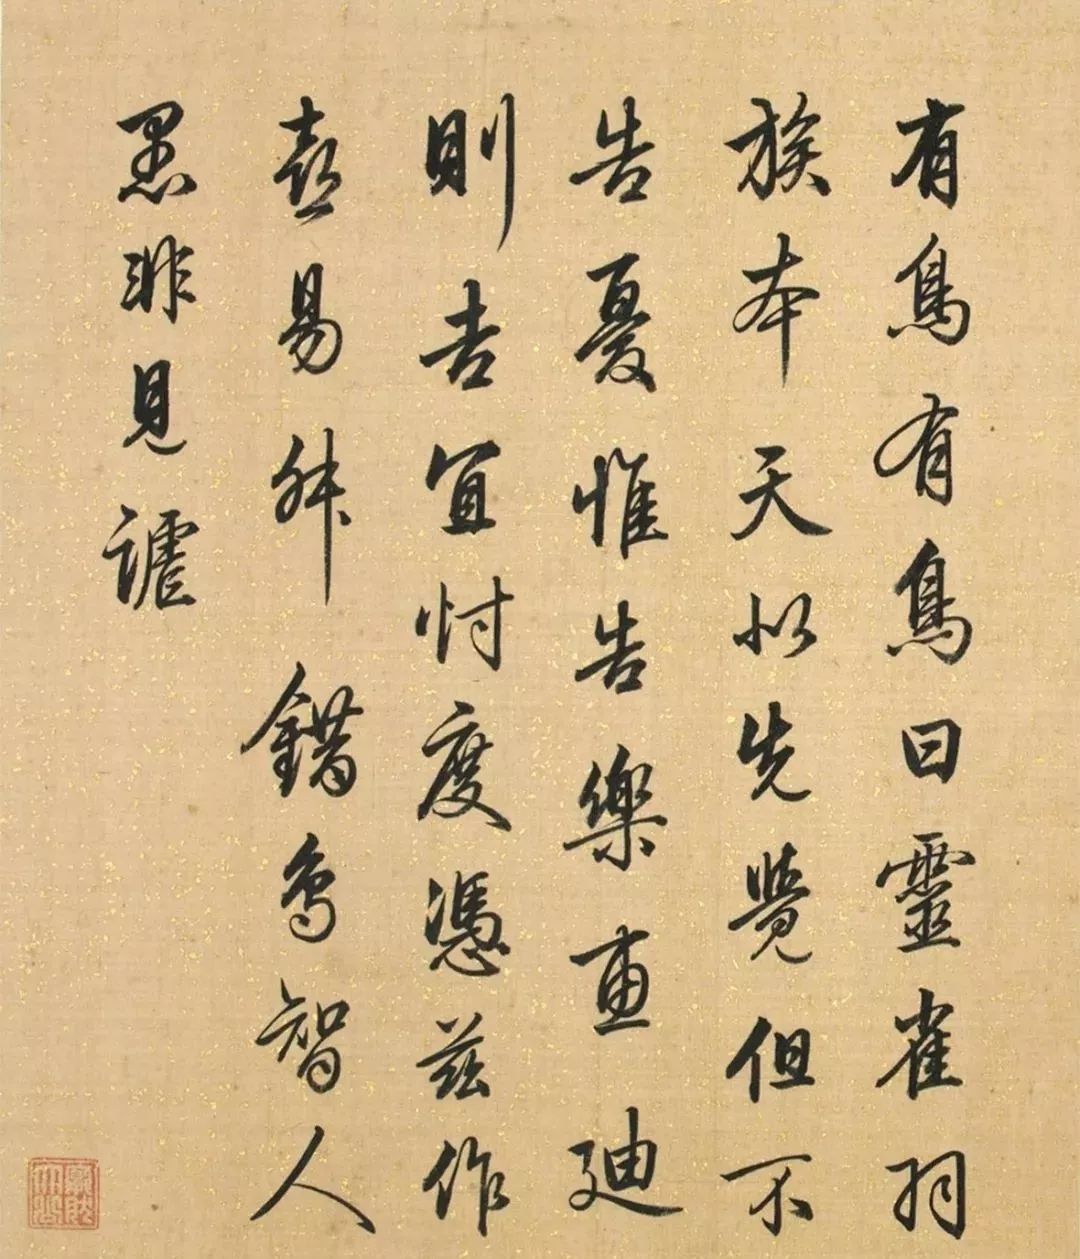 有鳥有鳥曰靈雀羽
族本天以先覺但不
告憂惟告樂惠迪
則吉宜忖度憑茲作
喜易舛錯鳥智人
愚非見謔